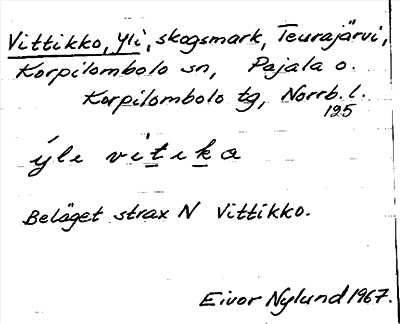 Vittikko, Yli, skogsmark, Teurajärvi,
Korpilombolo sn, Pajala o.
Korpilombolo tg, Norrb. l.
125
ýle vitika
Beläget strax N Vittikko.
Eivor Nylund 1967.